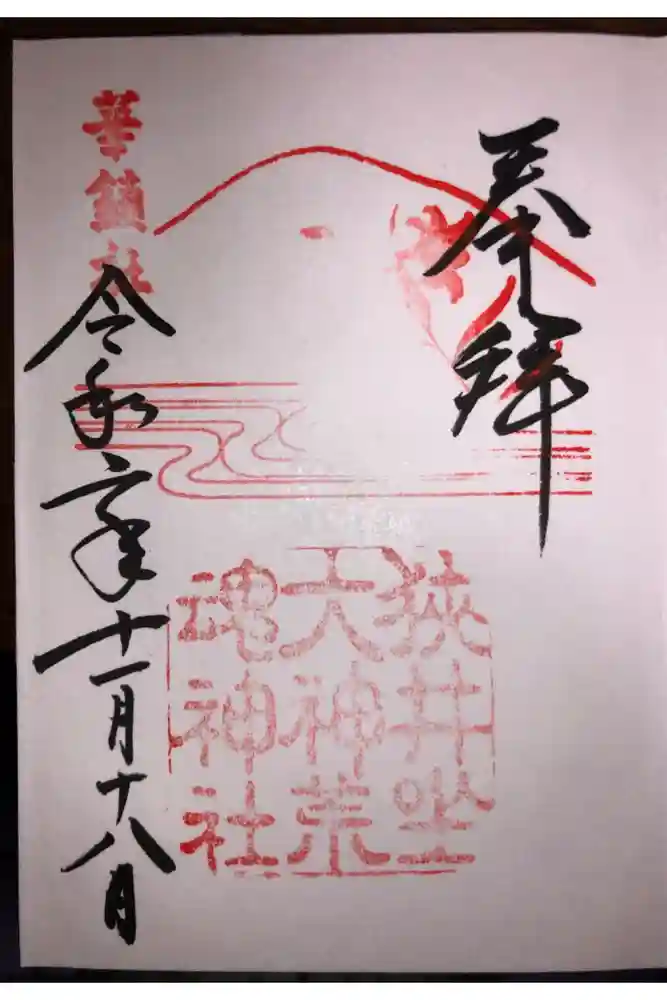 奉拝
狹井坐
大神荒
魂神社
華鎮社
令和元年十一月十八日